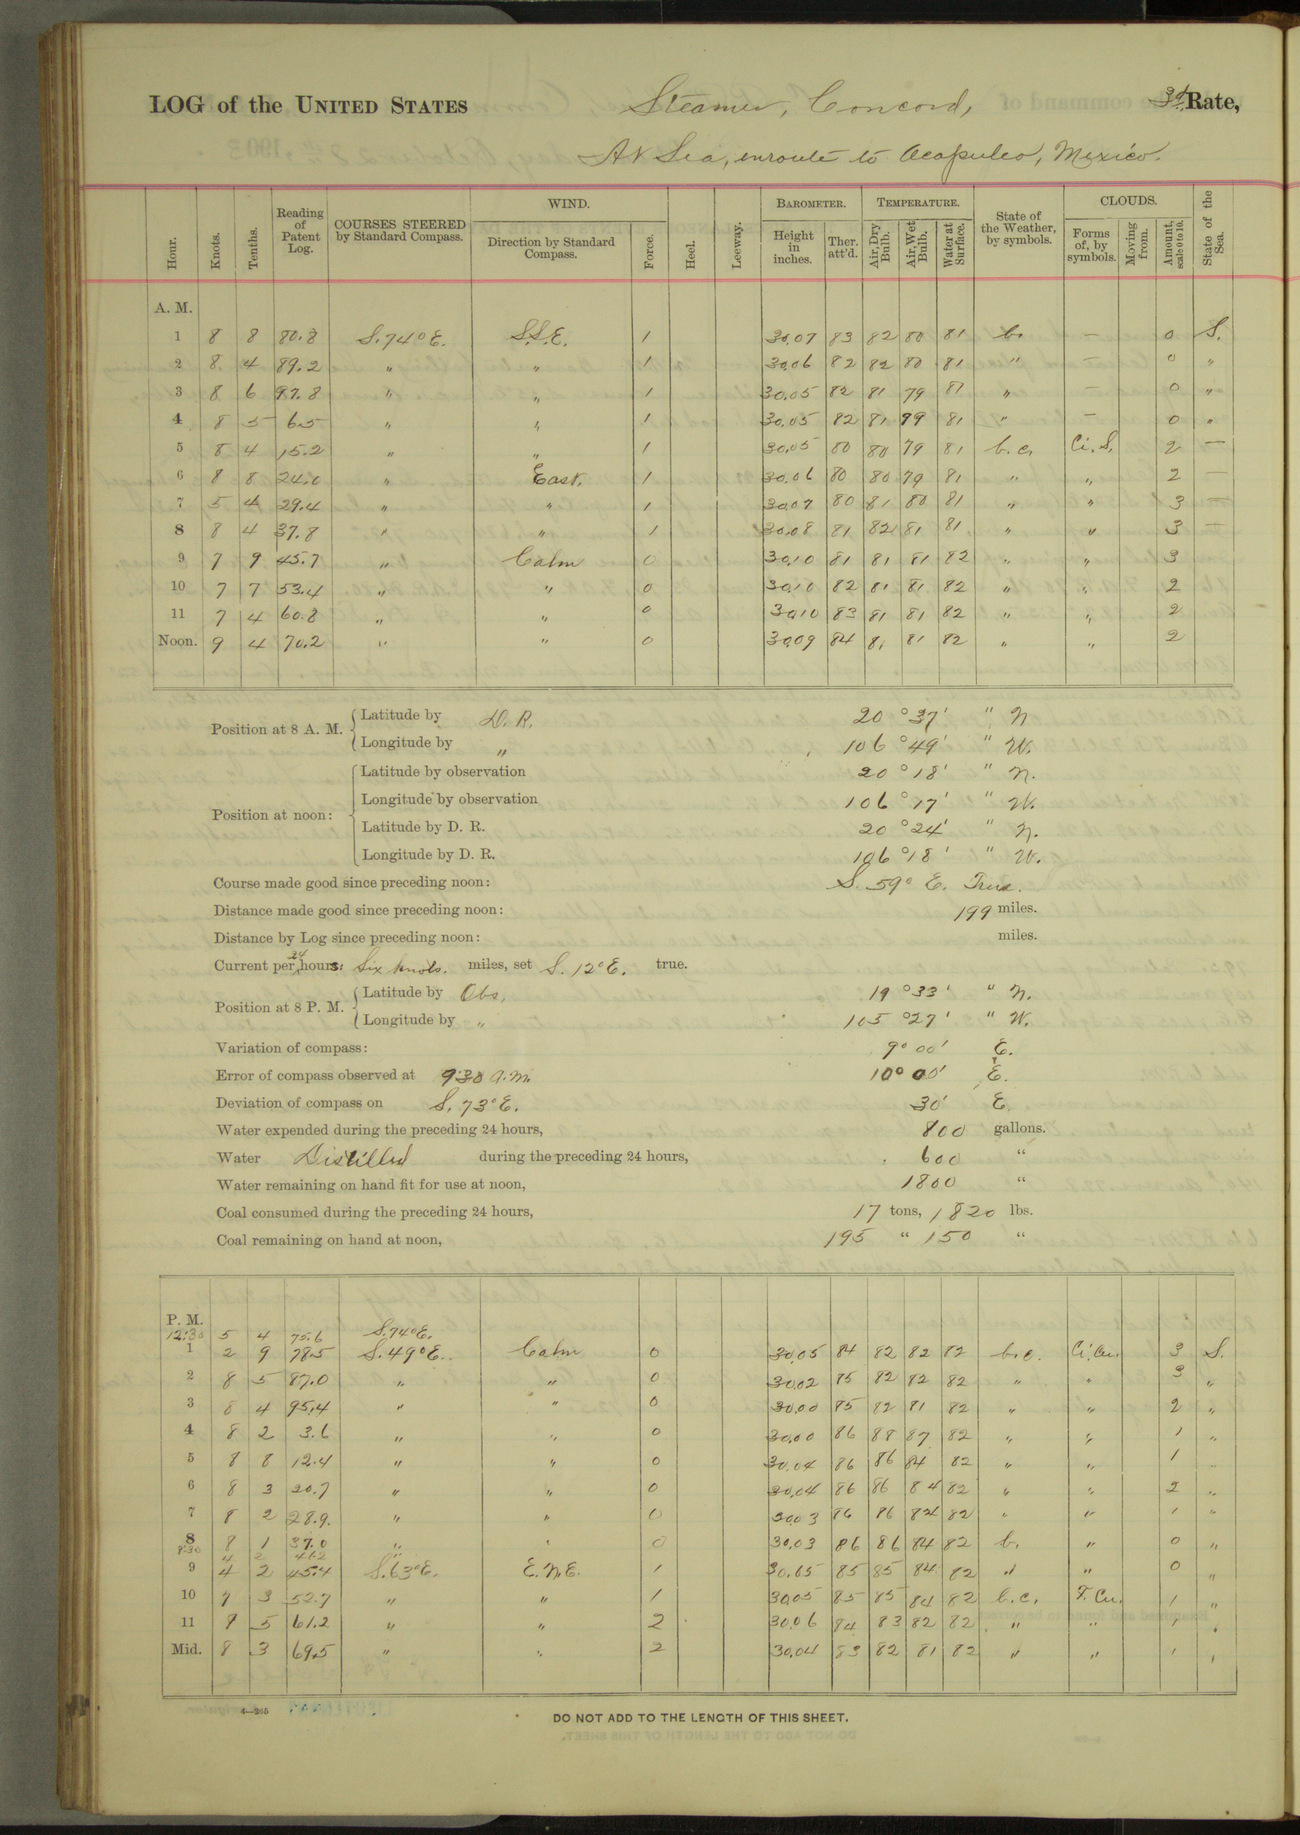 LOG of the UNITED STATES Steamer, Concord, 3d Rate,
At Sea, enroute to Acapulco, Mexico.
Hour. Knots. Tenths. Reading of Patent Log. COURSES STEERED by Standard Compass. WIND. Direction by Standard Compass. Force. Heel. Leeway. BAROMETER. Height in inches. Ther. att'd. TEMPERATURE. Air, Dry Bulb. Air, Wet Bulb. Water at Surface. State of the Weather, by symbols. CLOUDS. Forms of, by symbols. Moving from. Amount, scale 0 to 10. State of the Sea.
A. M.
1 8 8 80.8 S. 74° E. S.S.E. 1 30.07 83 82 80 81 b. — 0 S.
2 8 4 89.2 " " 1 30.06 82 82 80 81 " — 0 "
3 8 6 97.8 " " 1 30.05 82 81 79 81 " — 0 "
4 8 5 6.5 " " 1 30.05 82 81 79 81 " — 0 "
5 8 4 15.2 " " 1 30.05 80 80 79 81 b.c. Ci.S. 2 —
6 8 8 24.0 " East. 1 30.06 80 80 79 81 " " 2 —
7 5 4 29.4 " " 1 30.07 80 81 80 81 " " 3 —
8 8 4 37.8 " " 1 30.08 81 82 81 81 " " 3 —
9 7 9 45.7 " Calm 0 30.10 81 81 81 82 " " 3
10 7 7 53.4 " " 0 30.10 82 81 81 82 " " 2
11 7 4 60.8 " " 0 30.10 83 81 81 82 " " 2
Noon. 9 4 70.2 " " 0 30.09 84 81 81 82 " " 2
Position at 8 A. M. Latitude by D. R. 20 ° 37 ' " N
Longitude by " 106 ° 49 ' " W.
Position at noon: Latitude by observation 20 ° 18 ' " N.
Longitude by observation 106 ° 17 ' " W.
Latitude by D. R. 20 ° 24 ' " N.
Longitude by D. R. 106 ° 18 ' " W.
Course made good since preceding noon: S. 59° E. True.
Distance made good since preceding noon: 199 miles.
Distance by Log since preceding noon: miles.
Current per 24 hours: Six knots. miles, set S. 12° E. true.
Position at 8 P. M. Latitude by Obs. 19 ° 33 ' " N.
Longitude by " 105 ° 27 ' " W.
Variation of compass: 9° 00' E.
Error of compass observed at 9:30 a.m. 10° 00' E.
Deviation of compass on S. 73° E. 30' E.
Water expended during the preceding 24 hours, 800 gallons.
Water Distilled during the preceding 24 hours, 600 "
Water remaining on hand fit for use at noon, 1800 "
Coal consumed during the preceding 24 hours, 17 tons, 1820 lbs.
Coal remaining on hand at noon, 195 " 150 "
P. M.
12:30 5 4 75.6 S. 74° E.
1 2 9 78.5 S. 49° E. Calm 0 30.05 84 82 82 82 b.c. Ci.Cu. 3 S.
2 8 5 87.0 " " 0 30.02 85 82 82 82 " " 3 "
3 8 4 95.4 " " 0 30.00 85 82 81 82 " " 2 "
4 8 2 3.6 " " 0 30.00 86 88 87 82 " " 1 "
5 8 8 12.4 " " 0 30.04 86 86 84 82 " " 1 "
6 8 3 20.7 " " 0 30.04 86 86 84 82 " " 2 "
7 8 2 28.9. " " 0 30.03 86 86 84 82 " " 1 "
8 8 1 37.0 " " 0 30.03 86 86 84 82 b. " 0 "
8:30 4 2 41.2 "
9 4 2 45.4 S. 63° E. E.N.E. 1 30.05 85 85 84 82 " " 0 "
10 7 3 52.7 " " 1 30.05 85 85 84 82 b.c. F.Cu. 1 "
11 8 5 61.2 " " 2 30.06 84 83 82 82 " " 1 "
Mid. 8 3 69.5 " " 2 30.04 83 82 81 82 " " 1 "
4—265
DO NOT ADD TO THE LENGTH OF THIS SHEET.